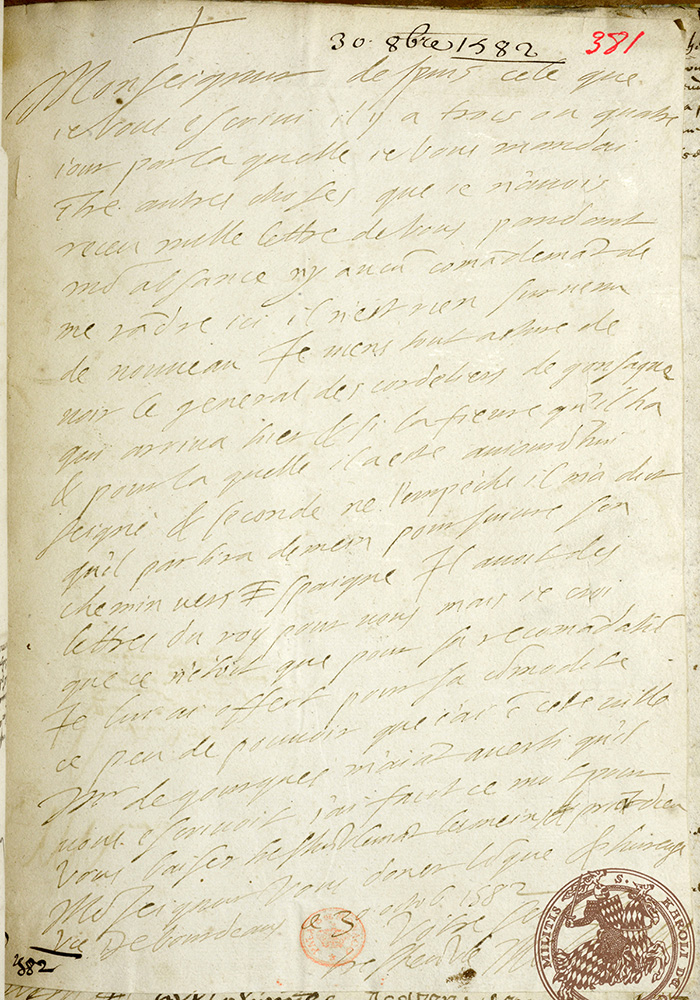 30. 8bre 1582
381
Monseigneur despuis cele que
ie vous escrivi il y a trois ou quatre
iour par la quelle ie vous mandai
ētre autres choses que ie n'avois
receu nulle lettre de vous pandant
mō absance ny aucū comādemāt de
me rādre ici il n'est rien survenu
de nouveau Ie viens tout asture de
voir le general des cordeliers de gonsague
qui arriva hier & si la fieure qu'il ha
& pour la quelle il a esté auiourdhui
seigné & seconde ne l'empeche il m'a dict
qu'il partira demein pour suivre son
chemin vers Espaigne Il avoit des
lettres du roy pour nous mais ie croi
que ce n'estoit que pour sa recomādatiō
Ie lui ai offert pour sa cōmodite
ce peu de pouvoir que i'ai ē cete ville
Mr de gourgues m'aiāt averti qu'il
vous escrivoit i'ai faict ce mot pour
vous baiser les mein & prāt dieu
Monseigneur vous doner longue & hureuse
vie De bourdeaus ce 30 octob. 1582
Votre
1582
MILITIS KAROLI DE